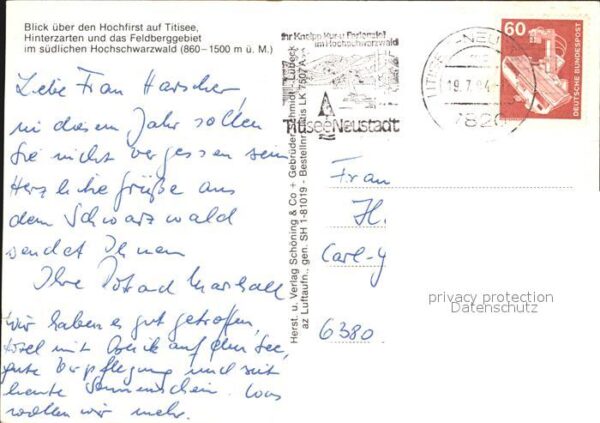 Blick über den Hochfirst auf Titisee,
Hinterzarten und das Feldberggebiet
im südlichen Hochschwarzwald (860–1500 m ü. M.)
Liebe Frau Harscher
in diesem Jahr sollen
Sie nicht vergessen sein
Herzliche Grüße aus
dem Schwarzwald
sendet Ihnen
Ihre Marhall
Wir haben es gut getroffen,
Hotel mit Blick auf den See,
gute Verpflegung und seit
heute Sonnenschein. Was
wollen wir mehr.
Herst. u. Verlag Schöning & Co + Gebrüder Schmidt, Lübeck
az Luftaufn., gen. SH 1-81019 - Bestellnr. LK 7507 A
Ihr Kneipp Kur- u. Ferienziel
im Hochschwarzwald
Titisee Neustadt
-NEU
19.7.84
7820
60
DEUTSCHE BUNDESPOST
Frau
H.
Carl-
6380
privacy protection
Datenschutz